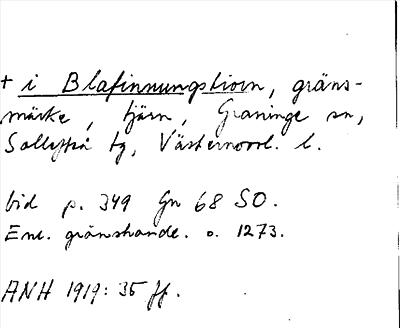 + i Blafinnungstiorn, gräns-
märke, tjärn, Graninge sn,
Sollefteå tg, Västernorrl. l.
vid p. 349 Gn 68 SO.
Enl. gränshandl. o. 1273.
ANH 1919: 35 ff.